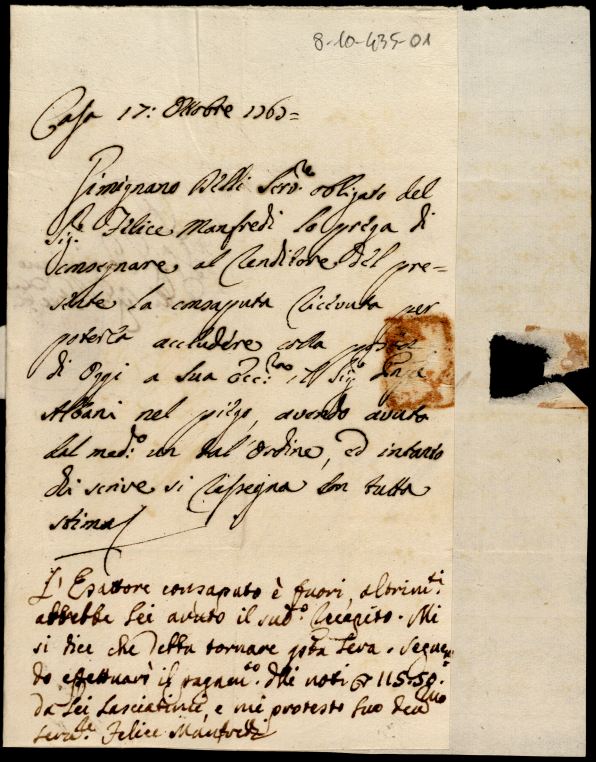 8-10-435-01
Casa 17: Ottobre 1767=
Gimignano Belli Serv.re obligato del
Sig.r Felice Manfredi lo prega di
consegnare al Lenditore del pre=
sente la consaputa ricevuta per
poterla accludere colla posta
di Oggi a Sua Ecc.za il Sig.r
Albani nel piego, avendo avuto
dal med.o un tal'Ordine, ed intanto
chi scrive si rassegna con tutta
stima
L'Esattore consaputo è fuori, altrim.ti
avrebbe Lei avuto il sud.o recapito. Mi
si dice che debba tornare q.sta sera. Seguen
do effettuarsi il pagam.to delli noti 115:50:
da Lei lasciatimi, e mi protesto suo dev.mo
serv.re Felice Manfredi